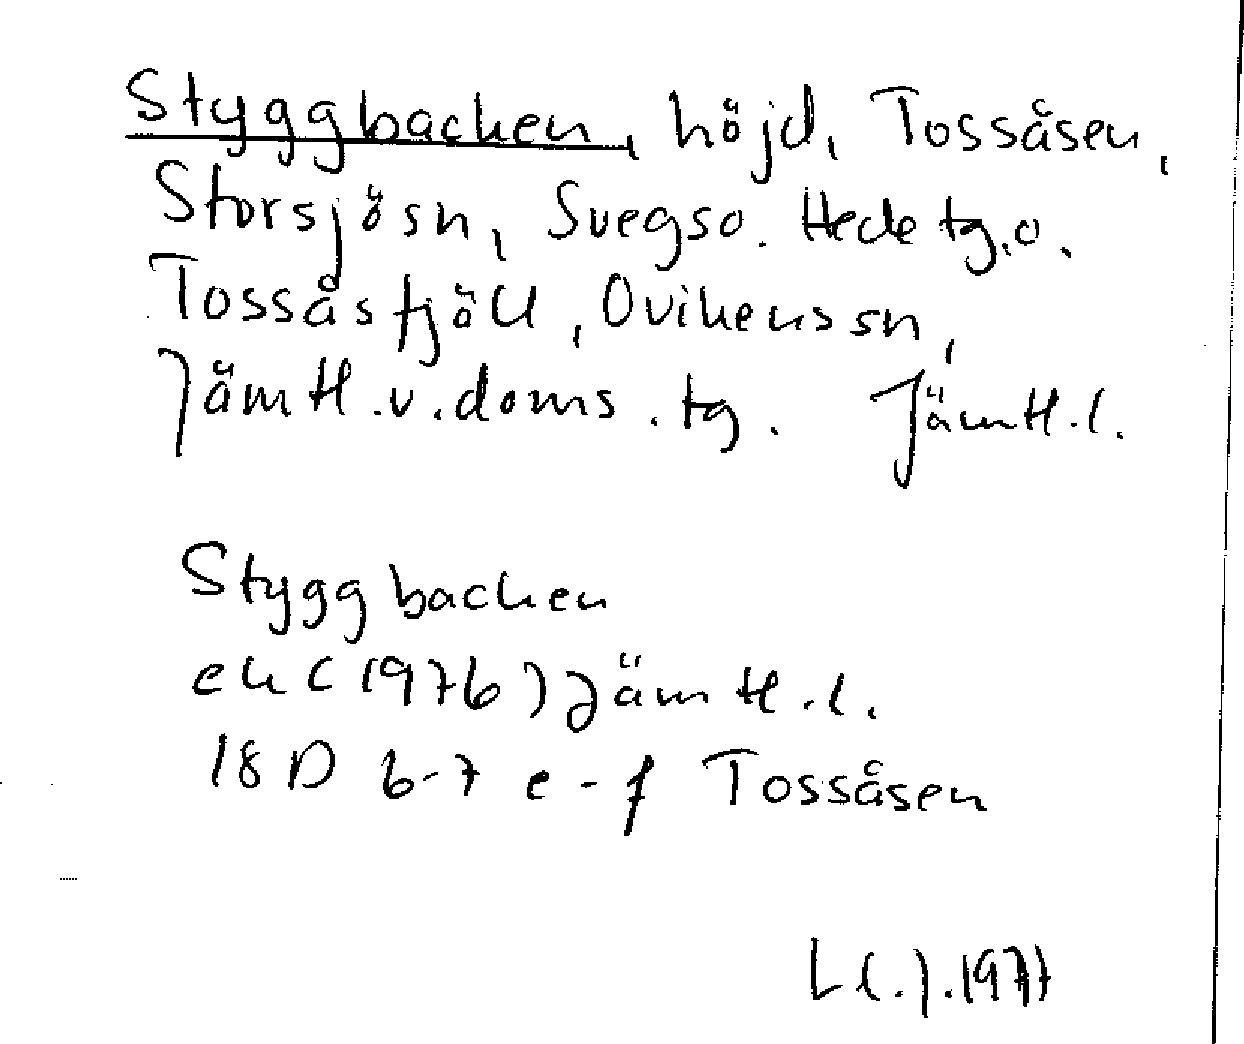 Styggbacken, höjd, Tossåsen,
Storsjö sn, Svegs o. Hede tg, o.
Tossåsfjäll, Ovikens sn,
Jämtl. v. doms. tg. Jämtl. l.
Styggbacken
ek (1976) Jämtl. l.
18 D 6-7 e-f Tossåsen
1977